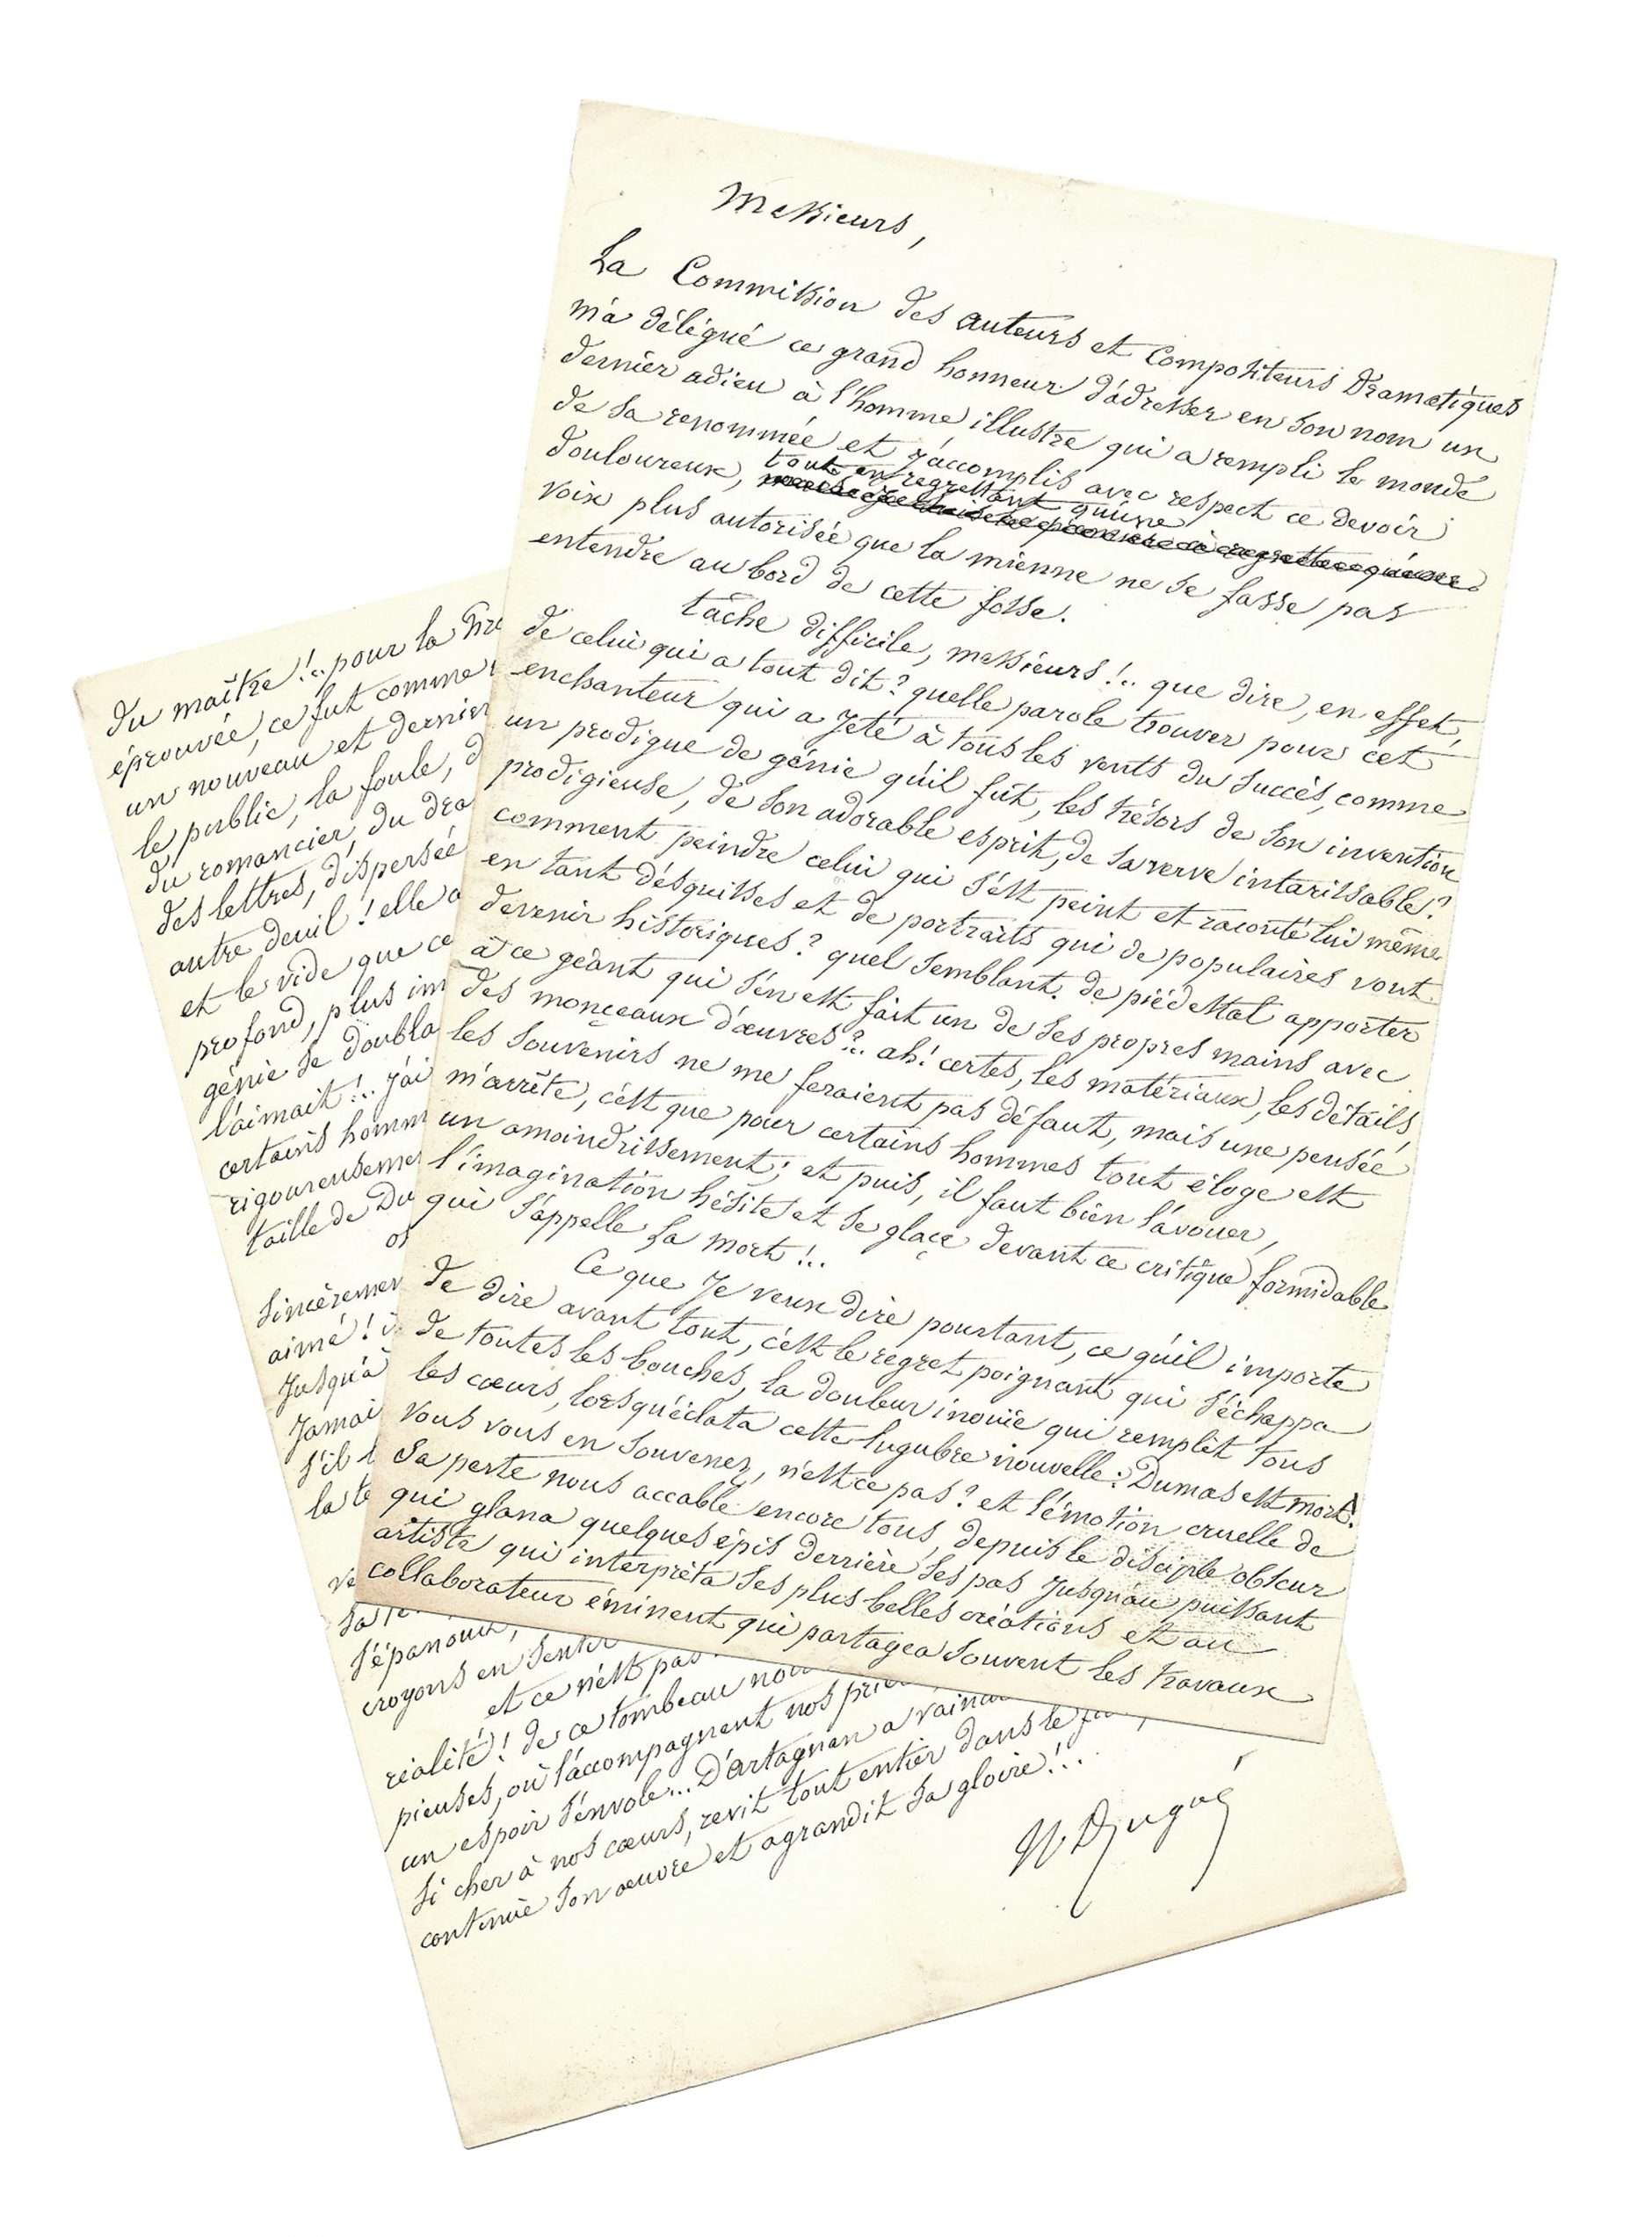 Messieurs,
La Commission des auteurs et Compositeurs Dramatiques
m'a délégué ce grand honneur d'adresser en son nom un
dernier adieu à l'homme illustre qui a rempli le monde
de sa renommée et j'accomplis avec respect ce devoir
douloureux, tout en regrettant qu'une
voix plus autorisée que la mienne ne se fasse pas
entendre au bord de cette fosse.
tâche difficile, messieurs!.. que dire, en effet,
de celui qui a tout dit? quelle parole trouver pour cet
enchanteur qui a jeté à tous les vents du succès, comme
un prodigue de génie qu'il fut, les trésors de son invention
prodigieuse, de son adorable esprit, de sa verve intarissable?
comment peindre celui qui s'est peint et raconté lui même
en tant d'ésquisses et de portraits qui de populaires vont
devenir historiques? quel semblant de piédestal apporter
à ce géant qui s'en est fait un de ses propres mains avec
des monçeaux d'œuvres?.. ah! certes, les matériaux, les détails,
les souvenirs ne me feraient pas défaut, mais une pensée
m'arrête, c'est que pour certains hommes tout éloge est
un amoindrissement; et puis, il faut bien l'avouer,
l'imagination hésite et se glaçe devant ce critique formidable
qui s'appelle la mort!..
Ce que je veux dire pourtant, ce qu'il importe
de dire avant tout, c'est le regret poignant qui s'échappa
de toutes les bouches, la douleur inouïe qui remplit tous
les cœurs, lorsqu'éclata cette lugubre nouvelle: Dumas est mort!
Vous vous en souvenez, n'est ce pas? et l'émotion cruelle de
sa perte nous accable encore tous, depuis le disciple obscur
qui glana quelques épis derrière ses pas jusqu'au puissant
artiste qui interprèta ses plus belles créations et au
collaborateur éminent qui partagea souvent les travaux
du maître!.. pour la
éprouvée, ce fut comme
un nouveau et dernier
le public, la foule,
du romancier, du
des lettres, dispersée
autre deuil! elle
et le vide que ce
profond, plus
génie se doubla
l'aimait!.. j'ai
certains
rigoureuseme
taille de Du
aimé!
jusqu'à
s'il
s'épanouit,
croyons en sentir
et ce n'est pas
réalité! de ce tombeau
pieuses, où l'accompagnent nos
un espoir s'envole... D'artagnan a
si cher à nos cœurs, revit tout entier dans le
continue son œuvre et agrandit sa gloire!..